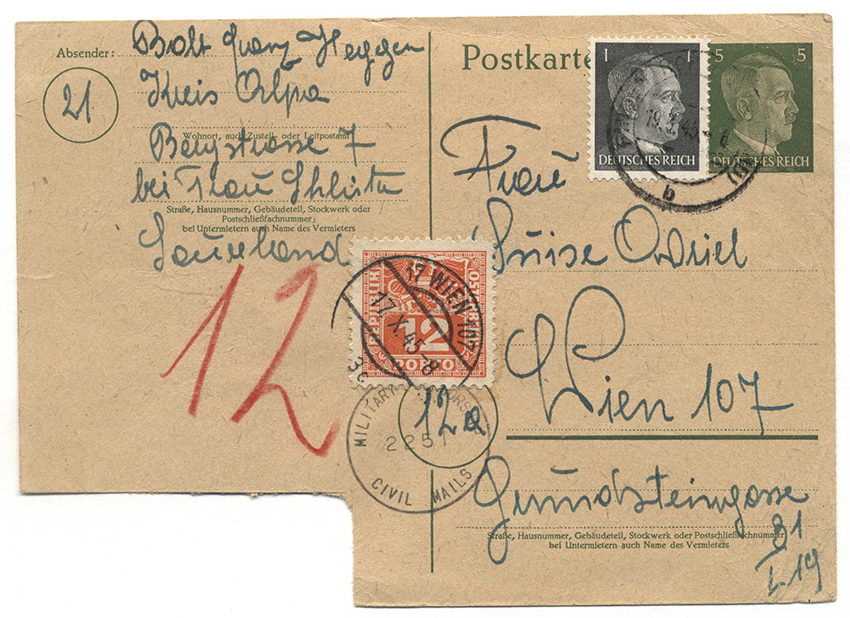 Absender:
21
Kreis
Wohnort, auch Zustell- oder Leitpostamt
Bergstrasse 7
bei Frau
Straße, Hausnummer, Gebäudeteil, Stockwerk oder
Postschließfachnummer;
bei Untermietern auch Name des Vermieters
Sauerland
12
Postkarte
1 1
DEUTSCHES REICH
5 5
DEUTSCHES REICH
b
Frau
Luise
Wien 107
12a
Grundsteingasse
Straße, Hausnummer, Gebäudeteil, Stockwerk oder Postschließfachnummer;
bei Untermietern auch Name des Vermieters
31
I. 19
REPUBLIK
12
PORTO
17 WIEN 107
17.X.45-8
MILITARY
2251
CIVIL MAILS